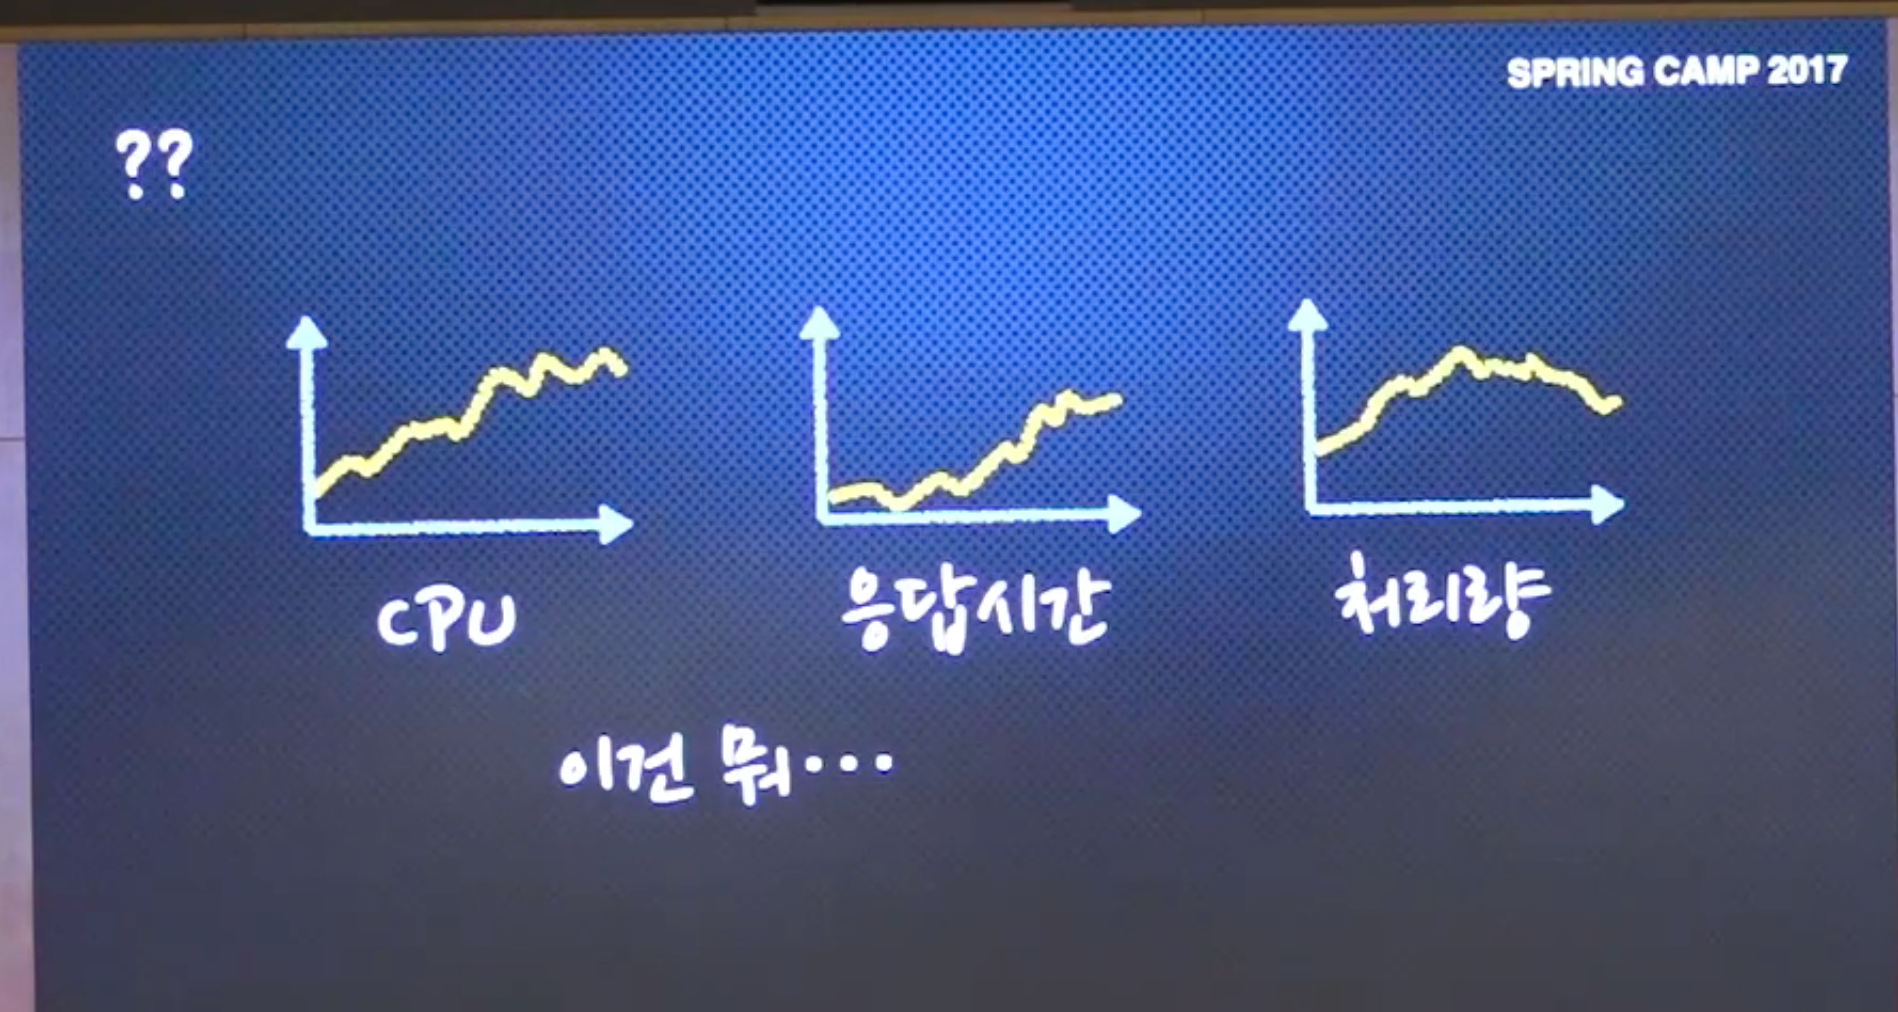 SPRING CAMP 2017
??
CPU
응답시간
처리량
이건 뭐...